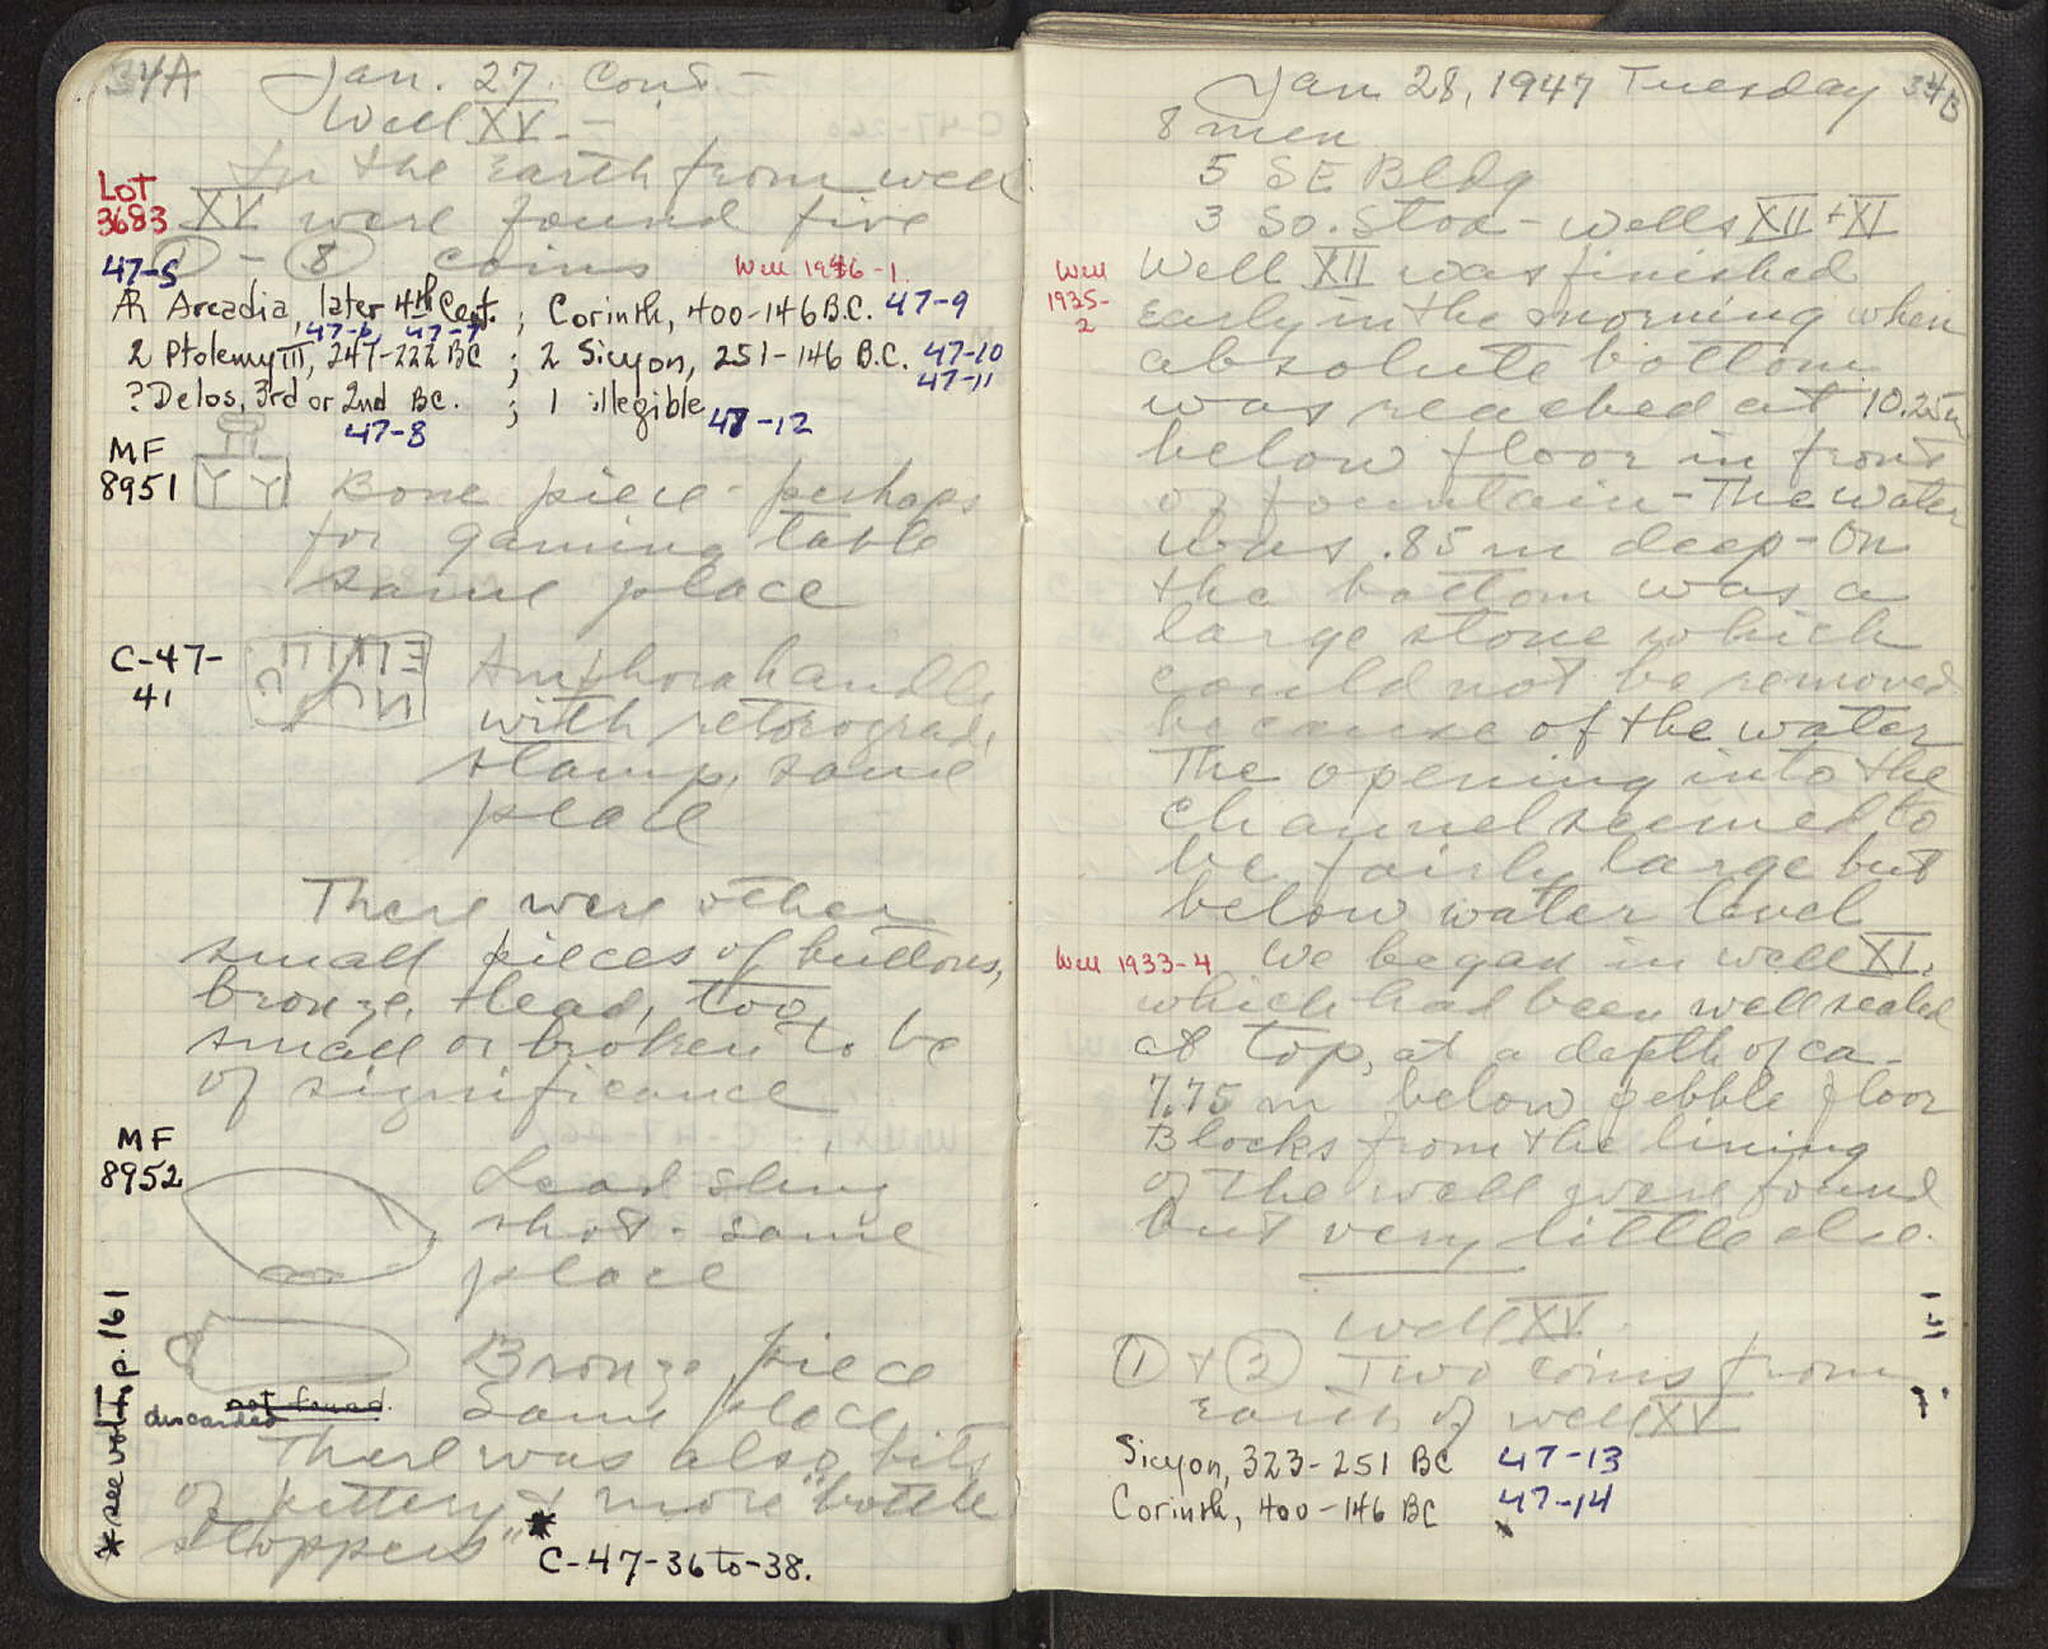 34A
Jan. 27. Cont. -
Well XV. -
In the earth from well
LOT
3683
XV were found five
① - ⑧ coins
47-5
Well 1946-1.
AR Arcadia, later 4th Cent. ; Corinth, 400-146 B.C. 47-9
47-6, 47-7
2 Ptolemy III, 247-222 BC ; 2 Sicyon, 251-146 B.C. 47-10
47-11
? Delos, 3rd or 2nd BC. ; 1 illegible 47-12
47-8
MF
8951
Bone piece - perhaps
for gaming table
same place
C-47-
41
Amphora handle
with retrograde
stamp, same
place
There were other
small pieces of buttons,
bronze, + lead, too
small or broken to be
of significance
MF
8952
Lead sling
shot - same
place
Bronze piece
Same place
not found.
discarded
There was also bits
of pottery + more "bottle
stoppers" *
C-47-36 to -38.
* see vol p. 161
Jan 28, 1947 Tuesday 34B
8 men
5 SE Bldg
3 So. Stoa - Wells XII + XI
Well
1935-
2
Well XII was finished
early in the morning when
absolute bottom
was reached at 10.25m
below floor in front
of fountain - The water
was .85 m deep - On
the bottom was a
large stone which
could not be removed
because of the water
The opening into the
channel seemed to
be fairly large but
below water level
Well 1933-4 We began in well XI,
which had been well sealed
at top, at a depth of ca.
7.75 m below pebble floor
Blocks from the lining
of the well were found
but very little else.
Well XV.
① + ② Two coins from
Earth of well XV
Sicyon, 323-251 BC 47-13
Corinth, 400-146 BC 47-14